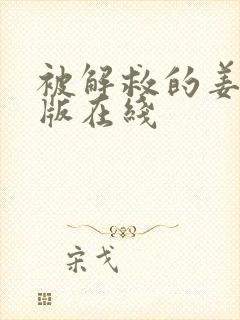 被解救的姜
版在线
宋戈